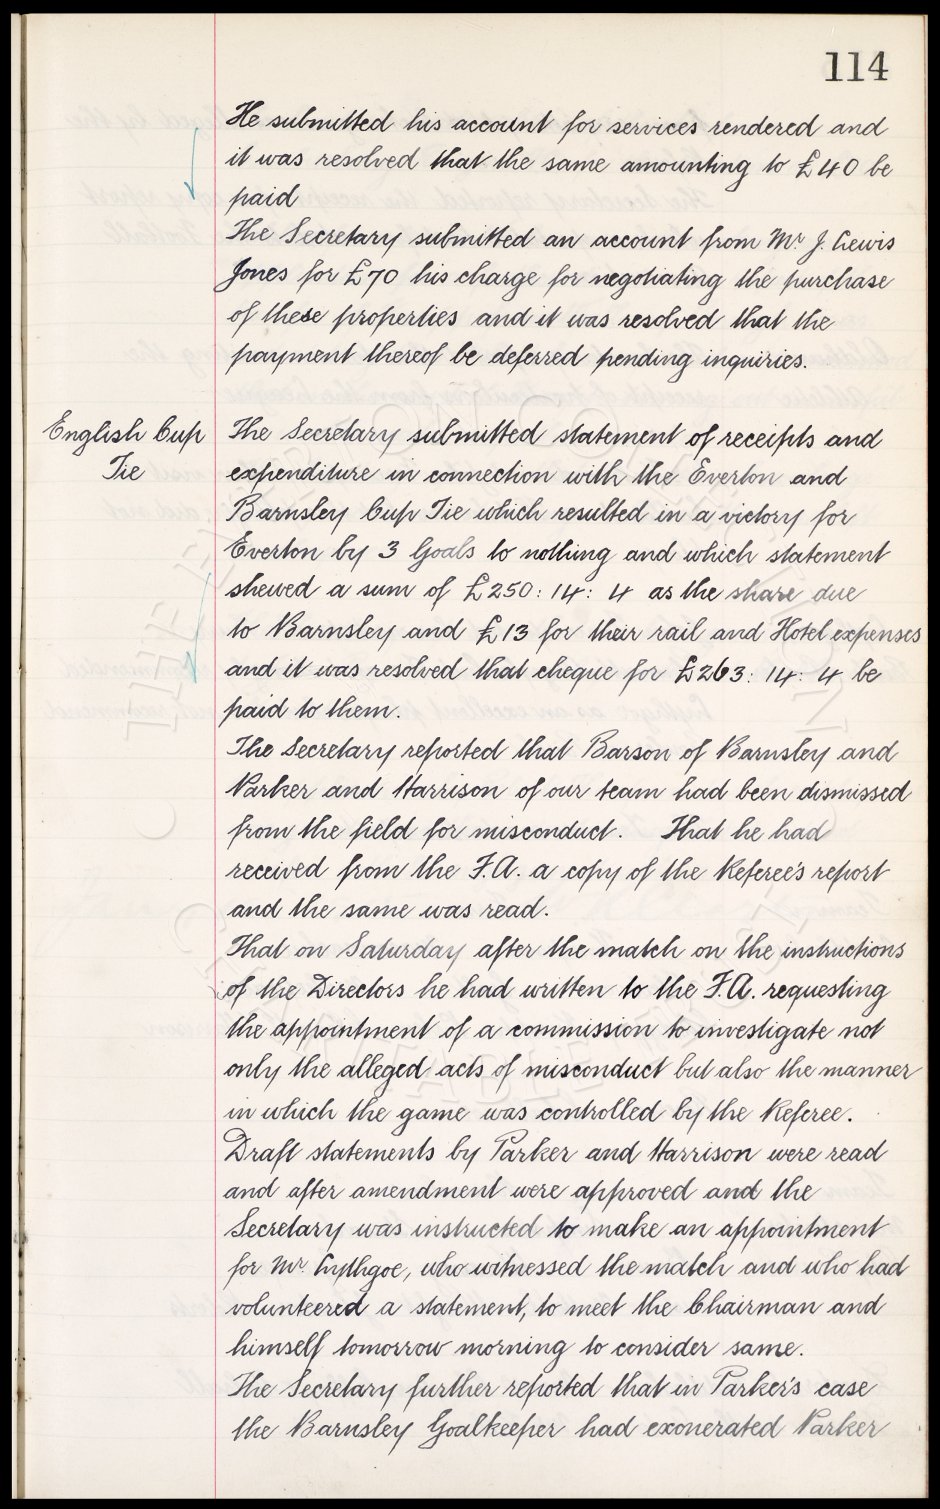 114
He submitted his account for services rendered and
it was resolved that the same amounting to £40 be
paid
The Secretary submitted an account from Mr. J. Lewis
Jones for £70 his charge for negotiating the purchase
of these properties and it was resolved that the
payment thereof be deferred pending inquiries.
English Cup
Tie
The Secretary submitted statement of receipts and
expenditure in connection with the Everton and
Barnsley Cup Tie which resulted in a victory for
Everton by 3 Goals to nothing and which statement
shewed a sum of £250: 14: 4 as the share due
to Barnsley and £13 for their rail and Hotel expenses
and it was resolved that cheque for £263: 14: 4 be
paid to them.
The Secretary reported that Barson of Barnsley and
Parker and Harrison of our team had been dismissed
from the field for misconduct. That he had
received from the F.A. a copy of the Referee's report
and the same was read.
That on Saturday after the match on the instructions
of the Directors he had written to the F.A. requesting
the appointment of a commission to investigate not
only the alleged acts of misconduct but also the manner
in which the game was controlled by the Referee.
Draft statements by Parker and Harrison were read
and after amendment were approved and the
Secretary was instructed to make an appointment
for Mr. Lythgoe, who witnessed the match and who had
volunteered a statement, to meet the Chairman and
himself tomorrow morning to consider same.
The Secretary further reported that in Parker's case
the Barnsley Goalkeeper had exonerated Parker